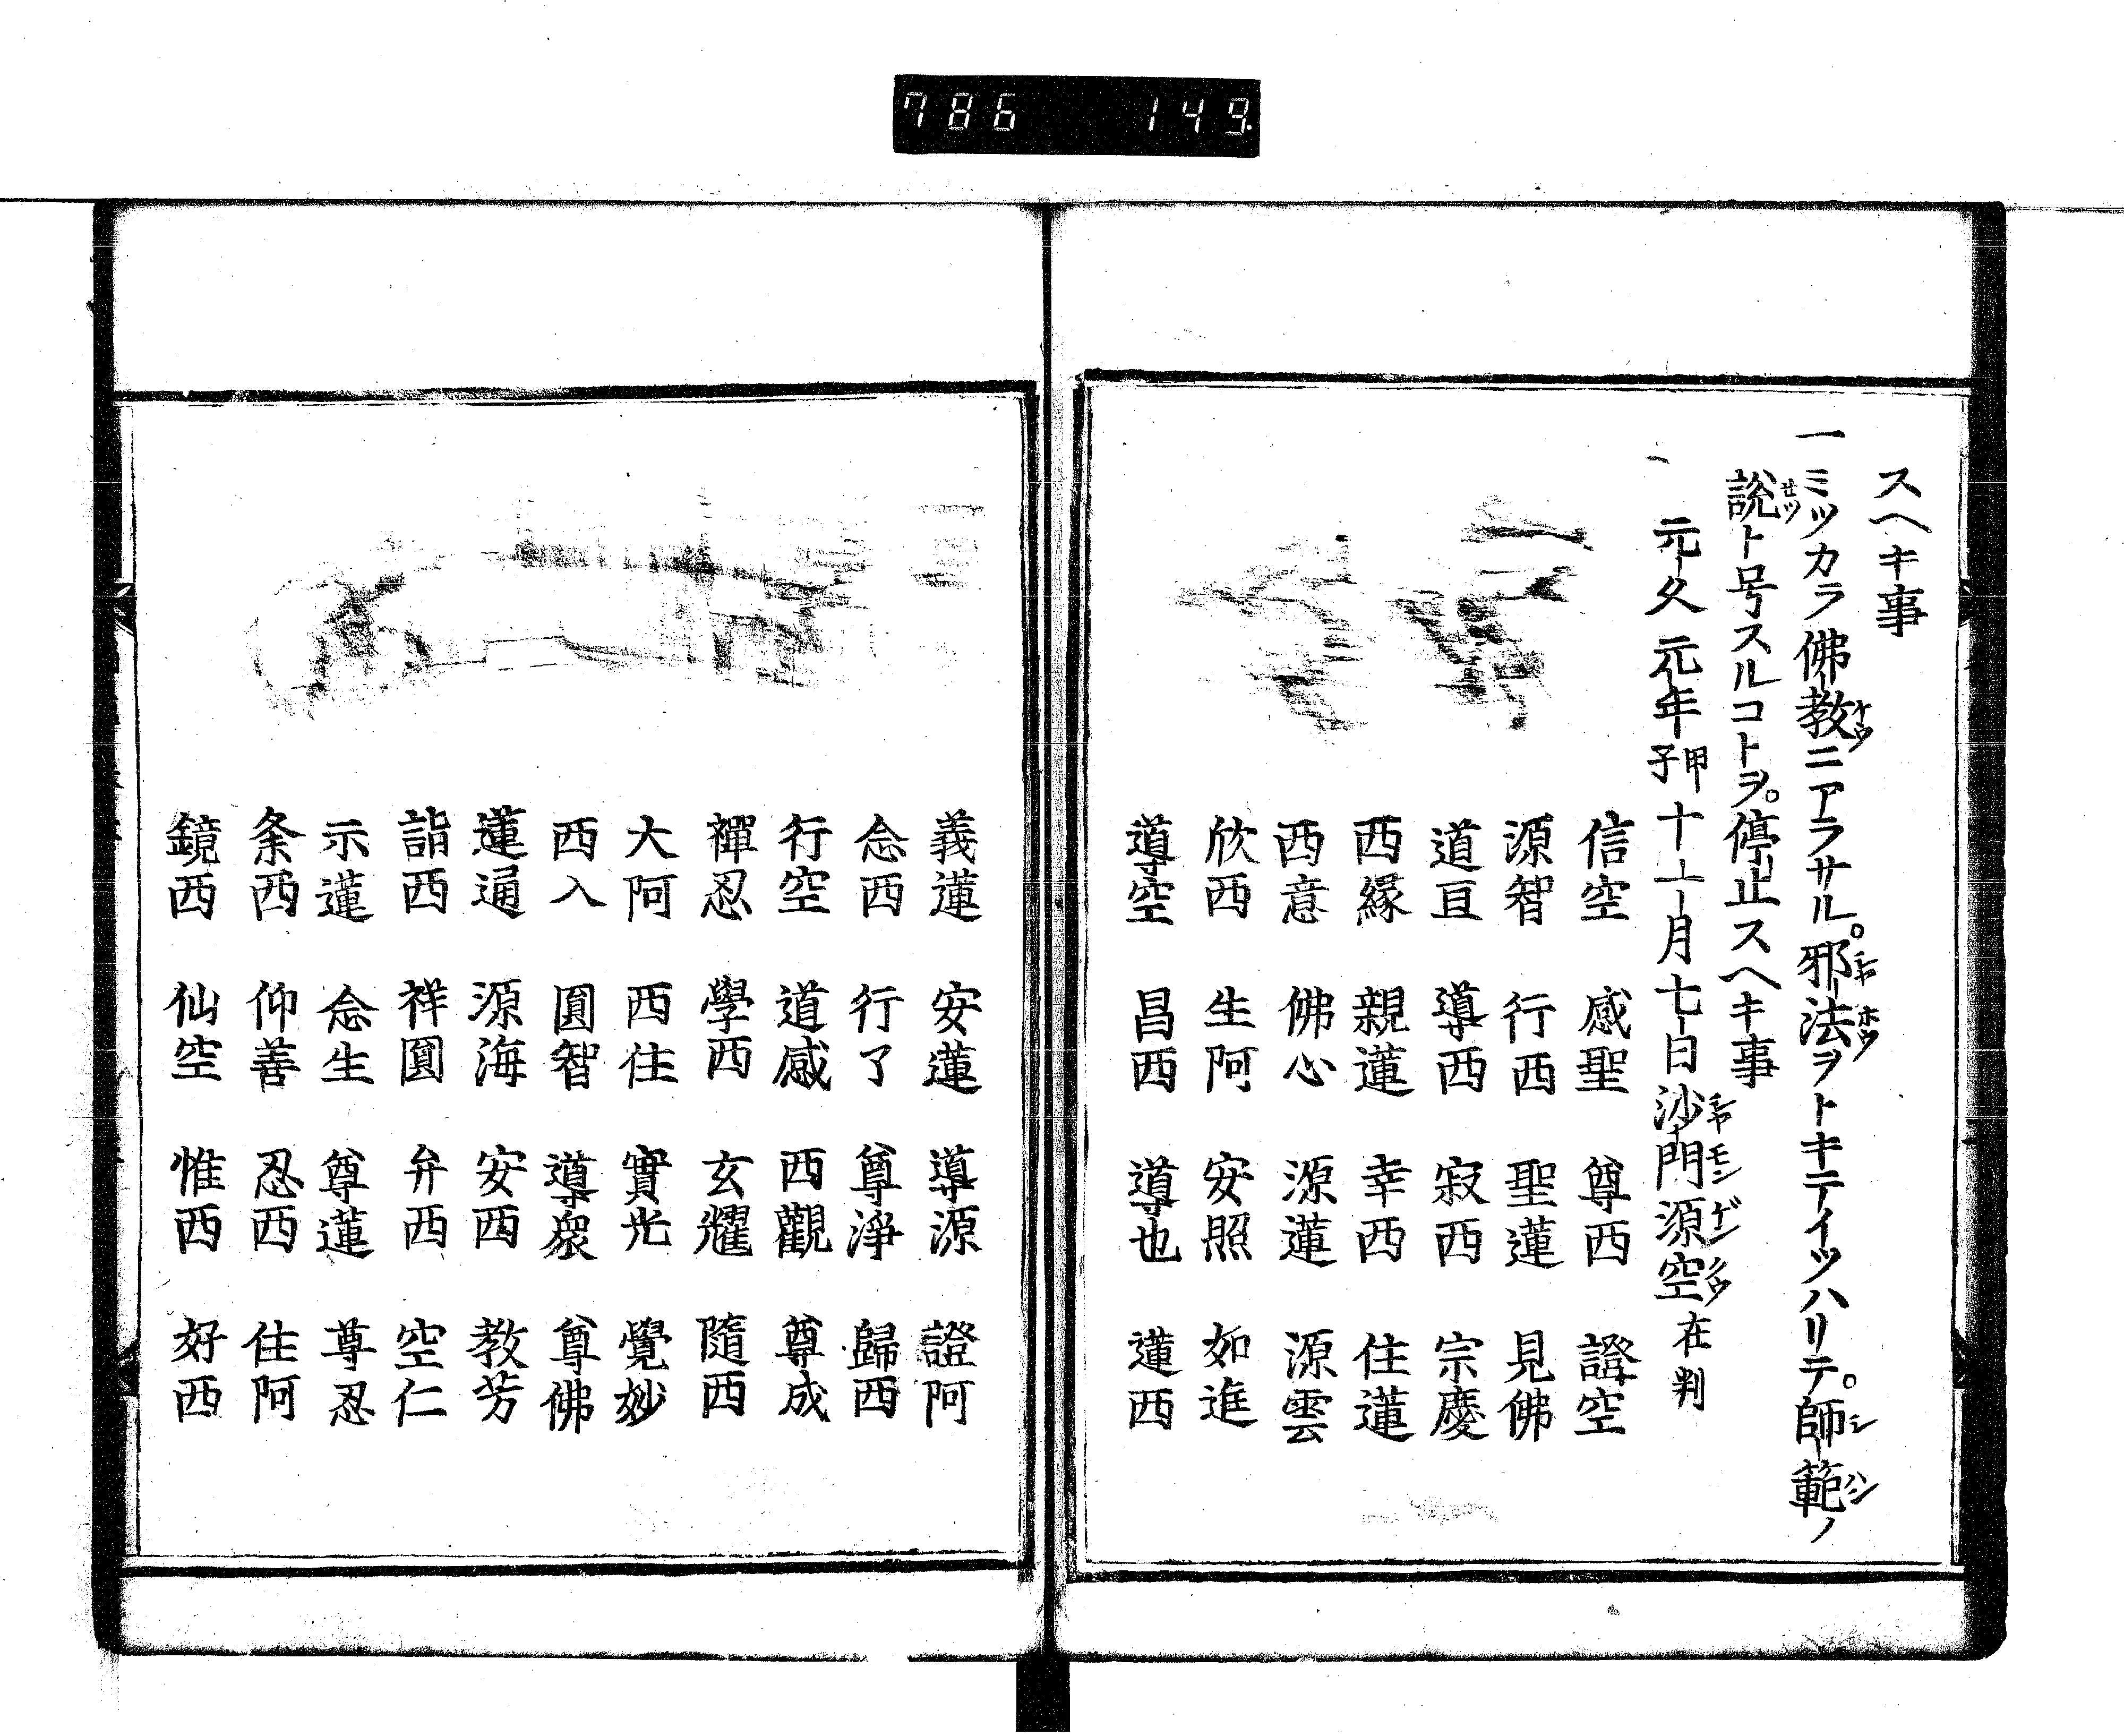 786 149.
スヘキ事
一ミツカラ佛教ニアラサル。邪法ヲトキテイツハリテ。師範ノ
説ト号スルコトヲ。停止スヘキ事
元久元年甲子十一月七日沙門源空在判
信空 感聖 尊西 證空
源智 行西 聖蓮 見佛
道亘 導西 寂西 宗慶
西縁 親蓮 幸西 住蓮
西意 佛心 源蓮 源雲
欣西 生阿 安照 如進
導空 昌西 導也 蓮西
義蓮 安蓮 導源 證阿
念西 行了 尊淨 歸西
行空 道感 西觀 尊成
禪忍 學西 玄耀 隨西
大阿 西住 實光 覺妙
西入 圓智 導衆 尊佛
蓮通 源海 安西 教芳
詣西 祥圓 弁西 空仁
示蓮 念生 尊蓮 尊忍
条西 仰善 忍西 住阿
鏡西 仙空 惟西 好西